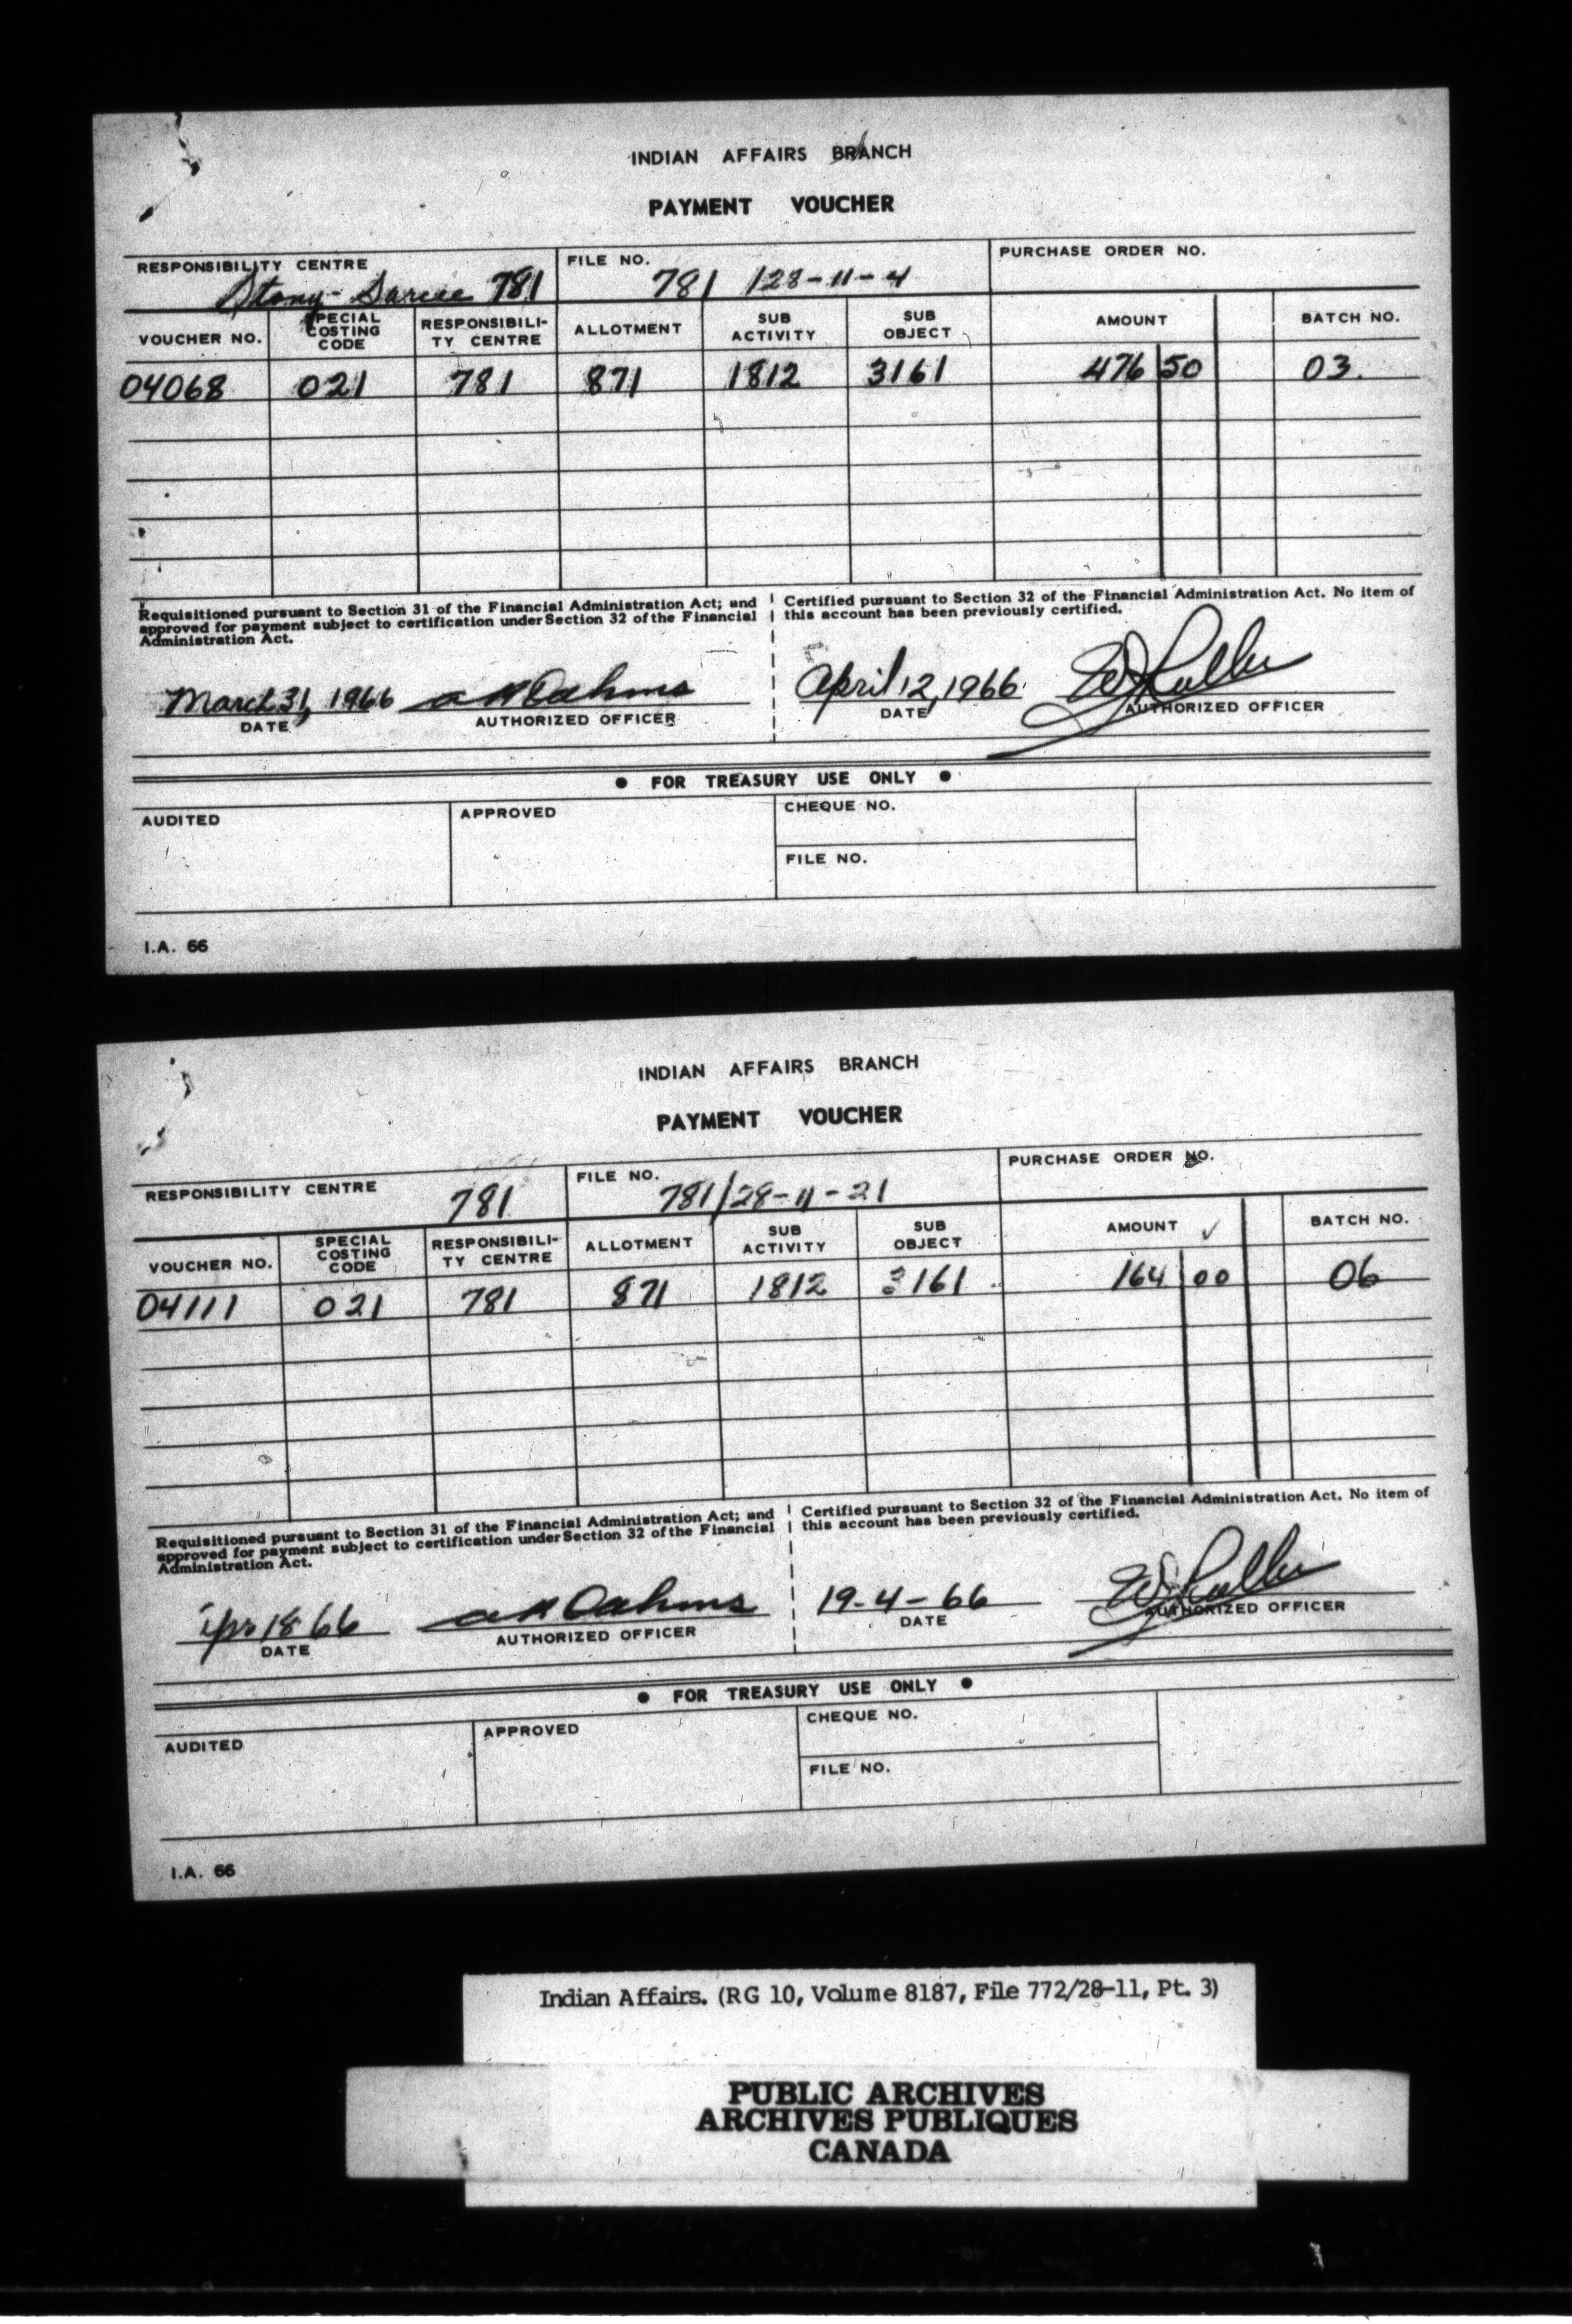 INDIAN AFFAIRS BRANCH
PAYMENT VOUCHER
RESPONSIBILITY CENTRE FILE NO. PURCHASE ORDER NO.
Stony-Sarcee 781 781 /28-11-4
VOUCHER NO. SPECIAL COSTING CODE RESPONSIBILI-TY CENTRE ALLOTMENT SUB ACTIVITY SUB OBJECT AMOUNT BATCH NO.
04068 021 781 871 1812 3161 476 50 03.
Requisitioned pursuant to Section 31 of the Financial Administration Act; and
approved for payment subject to certification under Section 32 of the Financial
Administration Act.
Certified pursuant to Section 32 of the Financial Administration Act. No item of
this account has been previously certified.
March 31, 1966 April 12, 1966
DATE AUTHORIZED OFFICER DATE AUTHORIZED OFFICER
• FOR TREASURY USE ONLY •
AUDITED APPROVED CHEQUE NO.
FILE NO.
I.A. 66
INDIAN AFFAIRS BRANCH
PAYMENT VOUCHER
RESPONSIBILITY CENTRE FILE NO. PURCHASE ORDER NO.
781 781/28-11-21
VOUCHER NO. SPECIAL COSTING CODE RESPONSIBILI-TY CENTRE ALLOTMENT SUB ACTIVITY SUB OBJECT AMOUNT ✓ BATCH NO.
04111 021 781 871 1812 3161 164 00 06
Requisitioned pursuant to Section 31 of the Financial Administration Act; and
approved for payment subject to certification under Section 32 of the Financial
Administration Act.
Certified pursuant to Section 32 of the Financial Administration Act. No item of
this account has been previously certified.
Apr 18 66 19-4-66
DATE AUTHORIZED OFFICER DATE AUTHORIZED OFFICER
• FOR TREASURY USE ONLY •
AUDITED APPROVED CHEQUE NO.
FILE NO.
I.A. 66
Indian Affairs. (RG 10, Volume 8187, File 772/28-11, Pt. 3)
PUBLIC ARCHIVES
ARCHIVES PUBLIQUES
CANADA